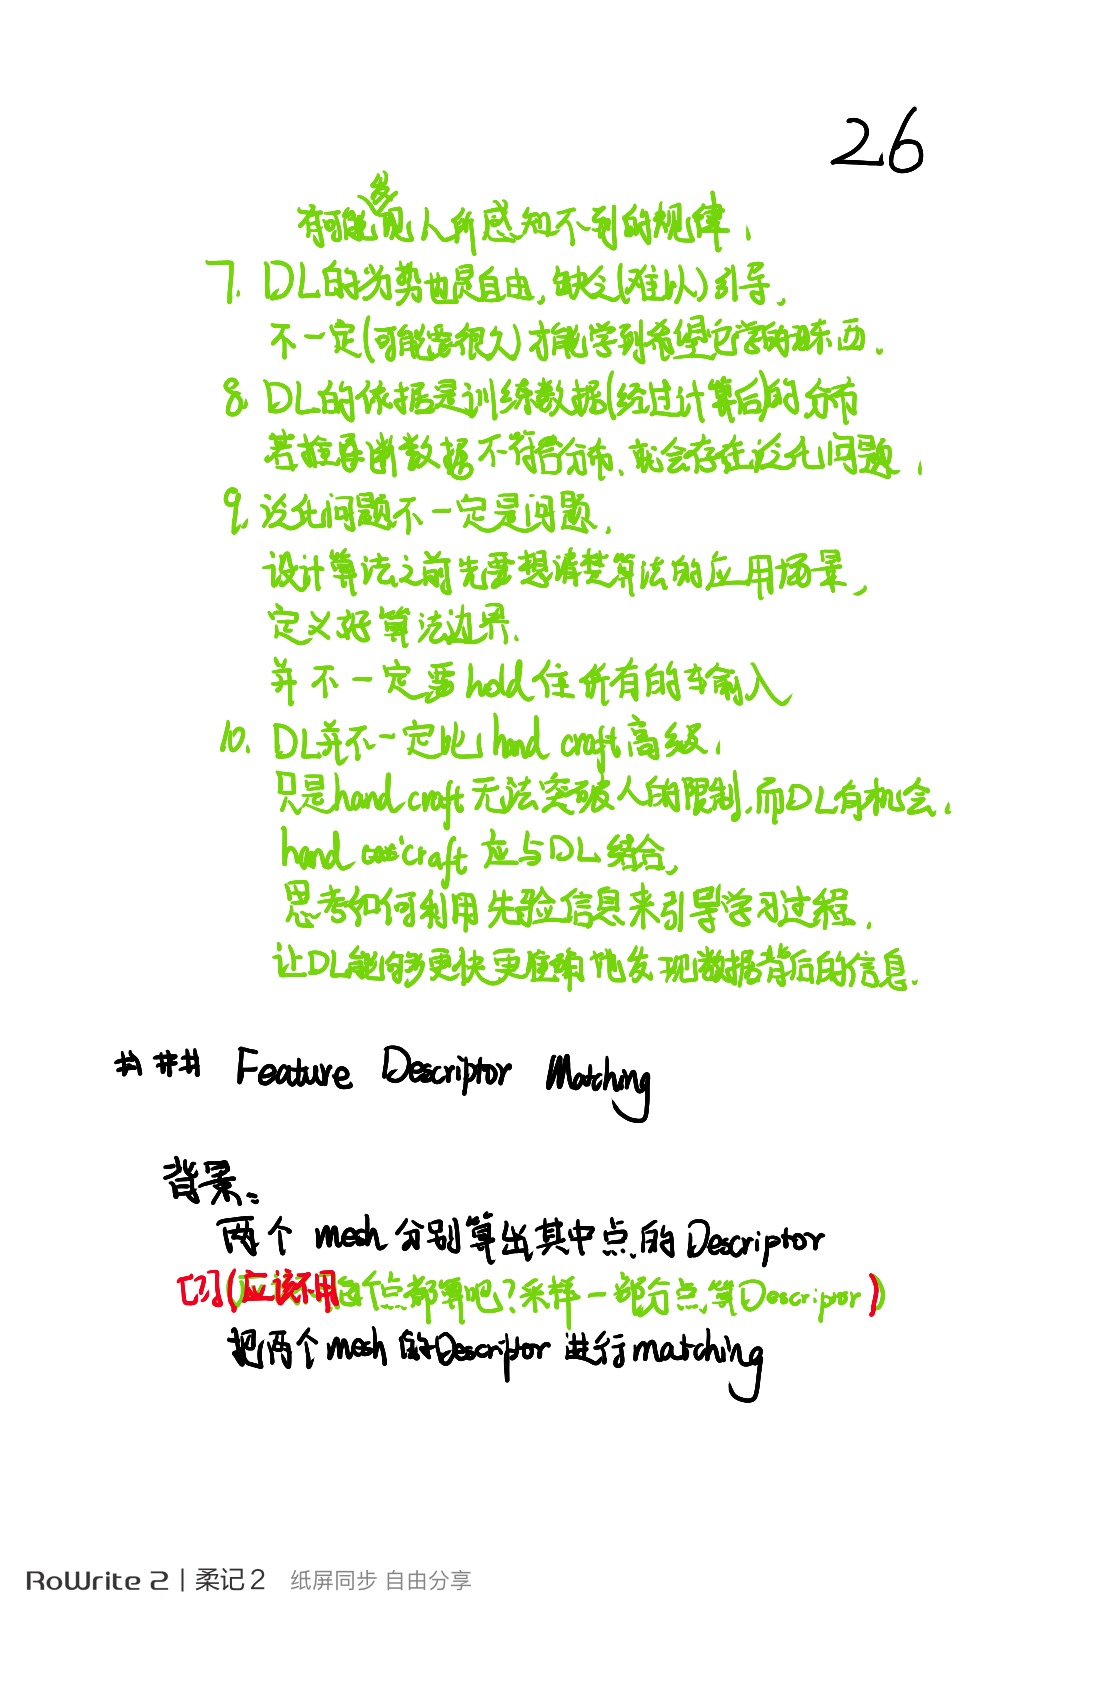 26
有可能发现人所感知不到的规律.
7. DL的劣势也是自由,缺乏(难以)引导,
不一定(可能要很久)才能学到希望它学的东西.
8. DL的依据是训练数据(经过计算后)的分布
若推导断数据不符合分布、就会存在泛化问题.
9. 泛化问题不一定是问题,
设计算法之前先要想清楚算法的应用场景,
定义好算法边界.
并不一定要hold住所有的输入
10. DL并不一定比 hand craft高级.
只是hand craft无法突破人的限制,而DL有机会.
hand craft 应与DL结合,
思考如何利用先验信息来引导学习过程.
让DL能够更快更准确地发现数据背后的信息.
### Feature Descriptor Matching
背景:
两个 mesh 分别算出其中点的 Descriptor
(应该不用每个点都算吧?采样一部分点算Descriptor)
把两个mesh的Descriptor进行matching
RoWrite 2 | 柔记 2 纸屏同步 自由分享